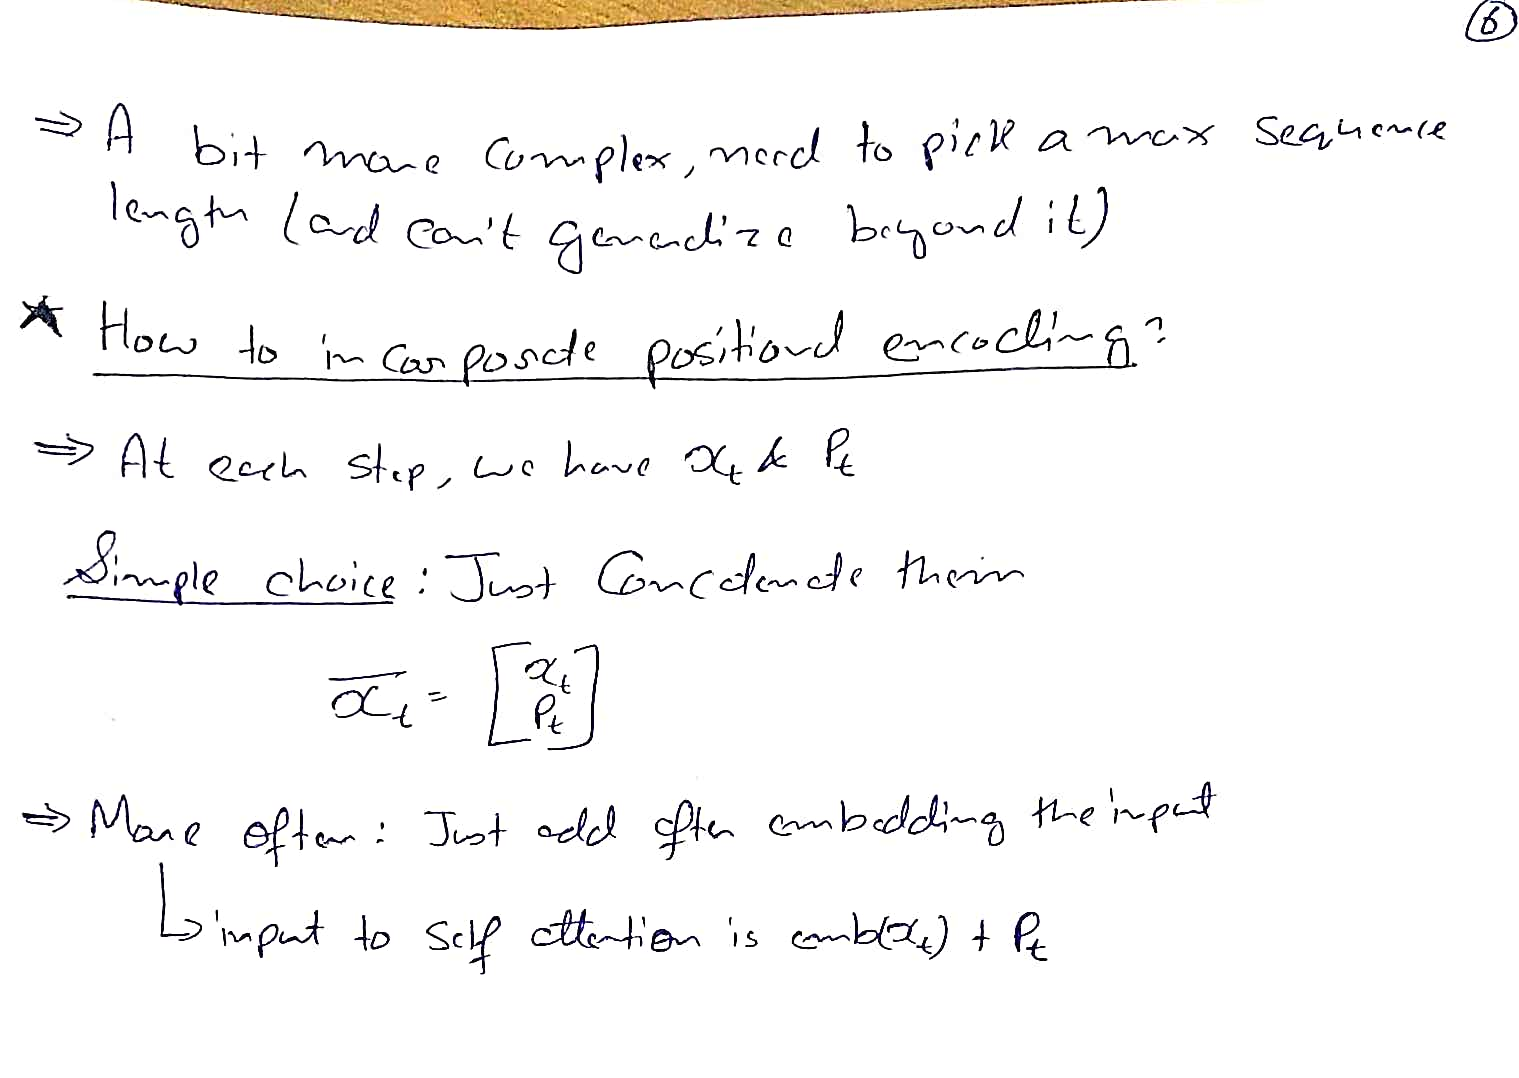 6
⇒ A bit more complex, need to pick a max sequence
length (and can't generalize beyond it)
★ How to incorporate positional encoding?
⇒ At each step, we have xₜ & Pₜ
Simple choice: Just Concatenate them
x̄ₜ = [xₜ
Pₜ]
⇒ More often: Just add after embedding the input
↳ input to self attention is emb(xₜ) + Pₜ